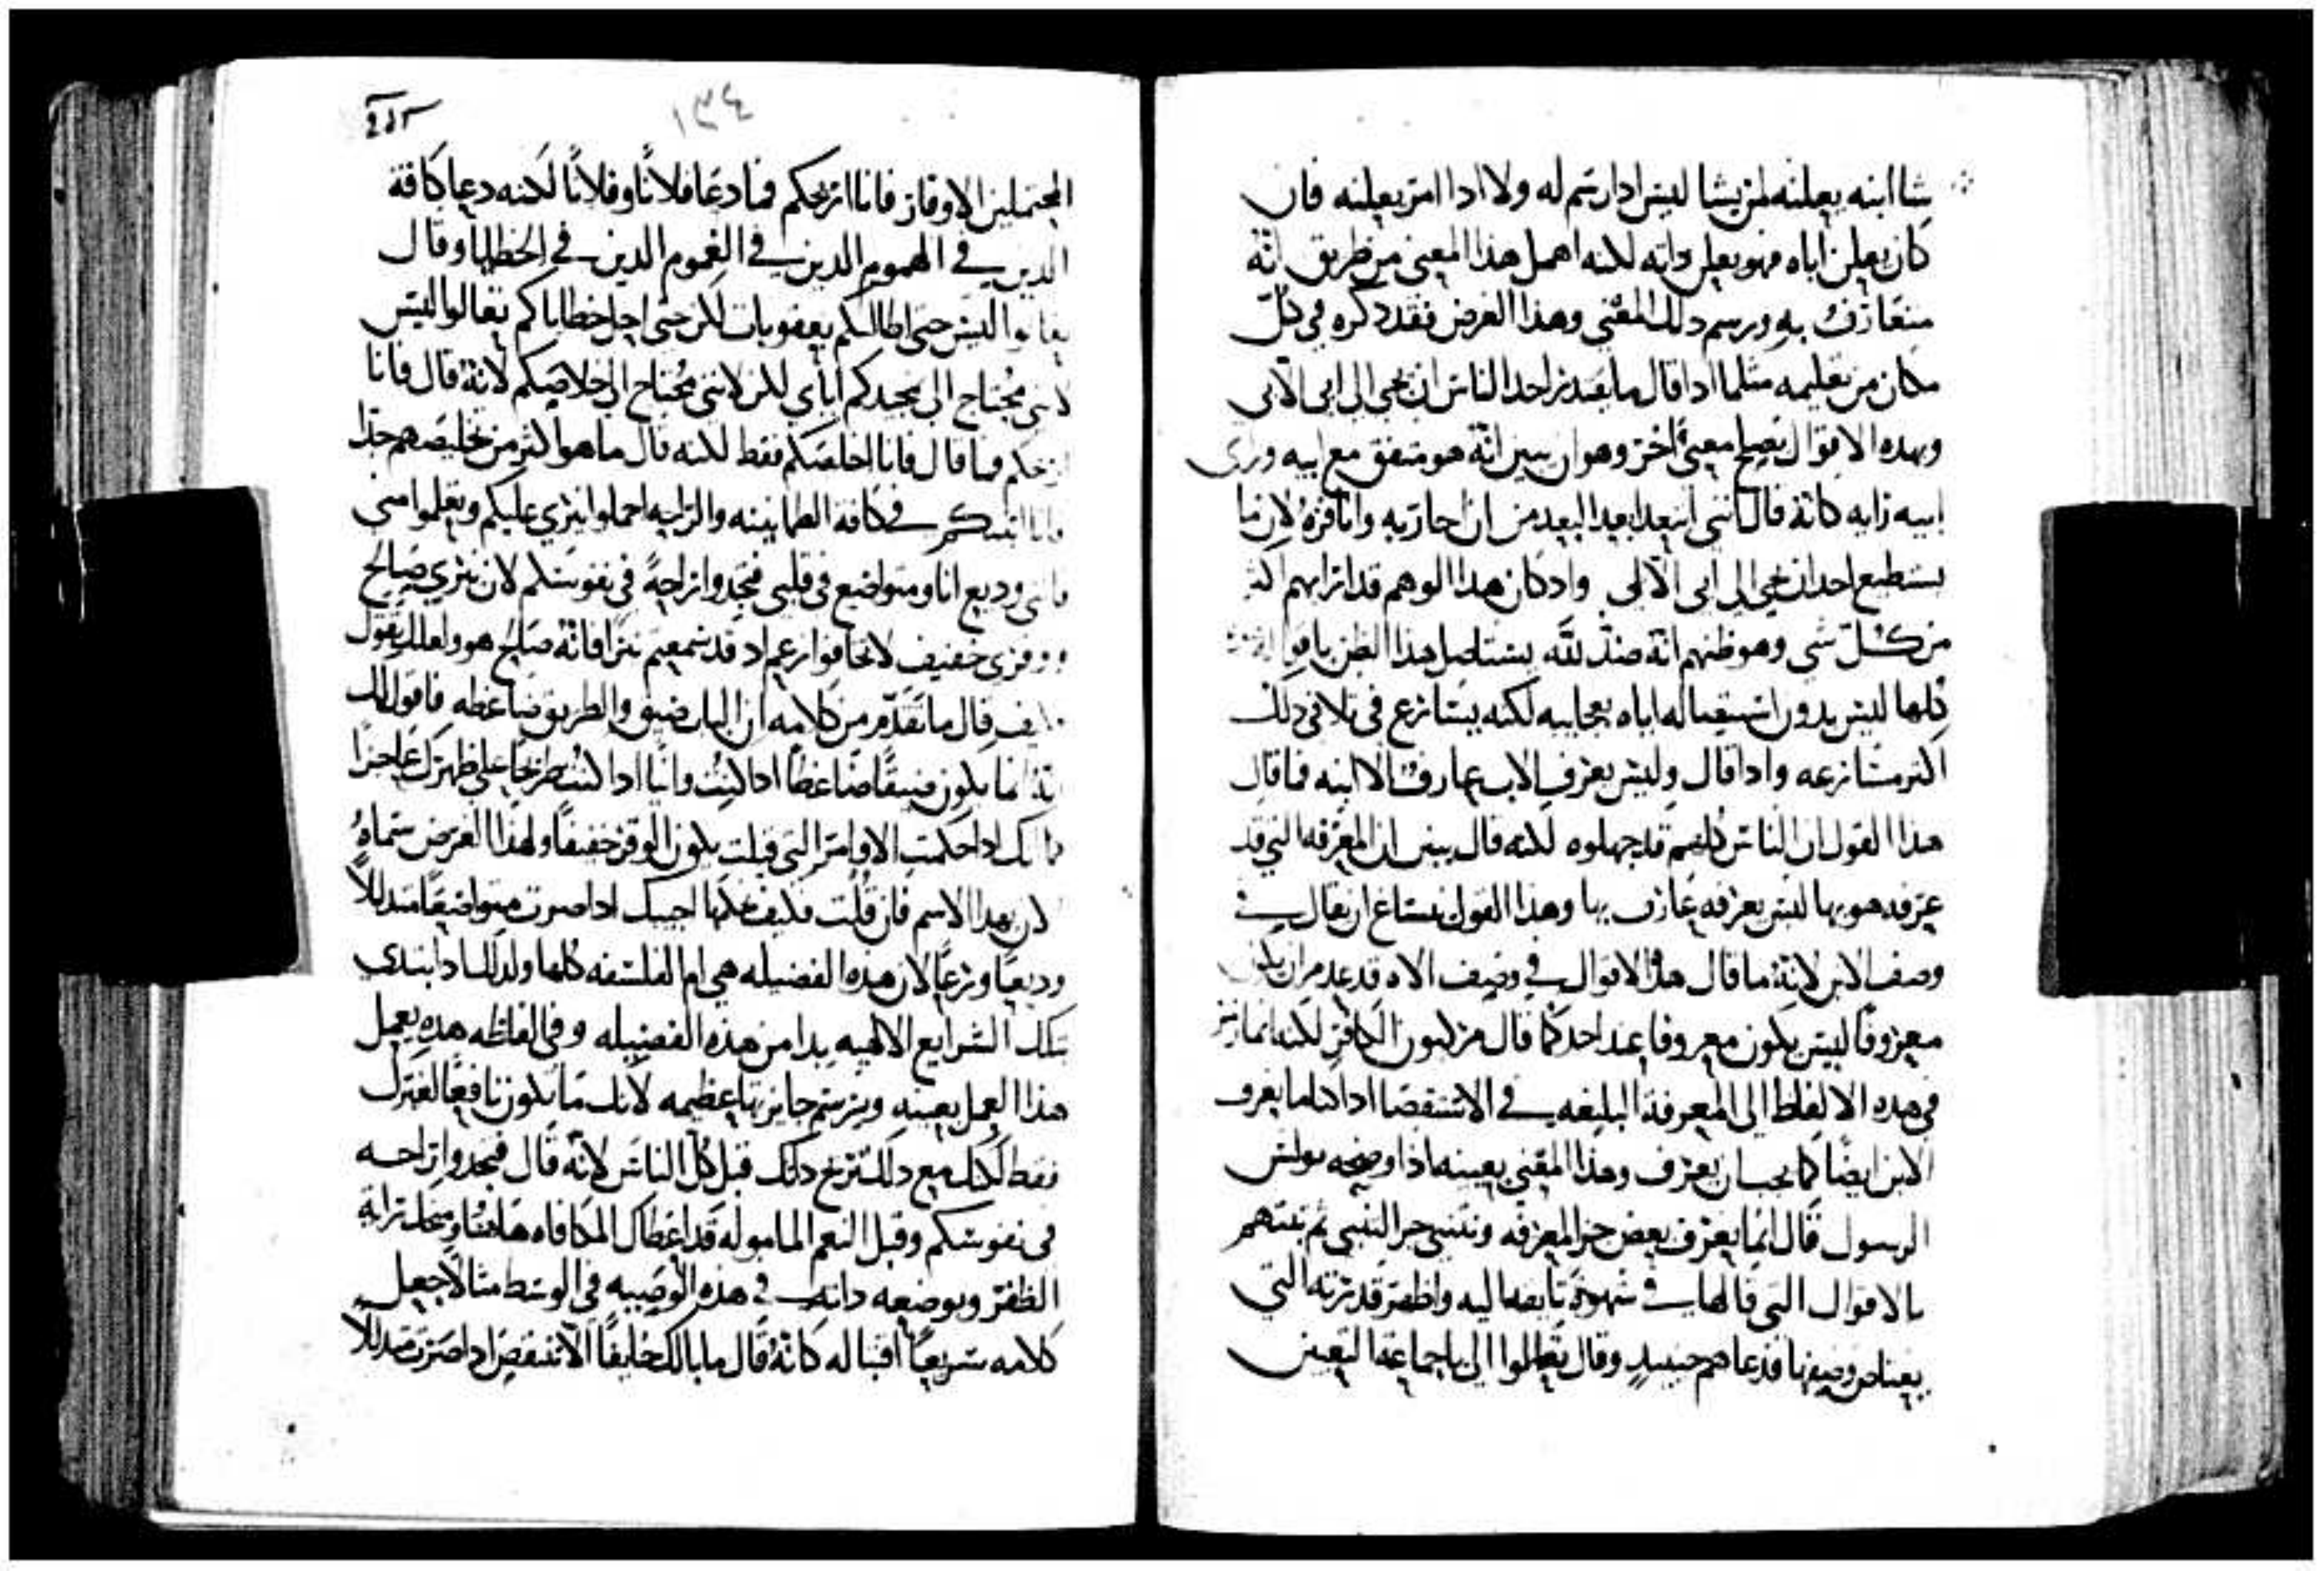 شا ابنه يعلنه لمن يشا ليس اذا رسم له ولا اذا امر يعلنه فان
كان يعلن اباه فهو يعلن ذاته لكنه اهمل هذا المعنى من طريق انّه
متعارف به ورسم ذلك المعنى وهذا الغرض فقد ذكره في كلّ
مكان من تعليمه مثلما اذا قال ما يقدر احد الناس ان يجي الى ابي الا بي
وبهذه الاقوال يصلح معنىً اخر وهو ان يبين انّه هو متفق مع ابيه وراى
ابيه رايه كانّه قال انني ابتعد ابعد البعد من ان احاربه وانافره لان ما
يستطيع احد ان يجي الى ابي الا بي واذ كان هذا الوهم قد ارابهم اكثر
من كل شي وهو ظنهم انّه ضدّ لله يستاصل هذا الظن باقواله
كلها ليس بدون استقباله اياه بعجايبه لكنه يسارع في تلافي ذلك
اكثر مسارعه واذا قال وليس يعرف الاب عارف الا ابنه فما قال
هذا القول ان الناس كلهم قد جهلوه لكنه قال يبين ان المعرفه التي قد
عرفه هو بها ليس يعرفه عارف بها وهذا القول يساغ ان يقال في
وصف الابن لانّه ما قال هذه الاقوال في وصف الاه قد عدم ان يكون
معروفًا ليس يكون معروفا عند احد كما قال مركيون الكافر لكنه انما يرمز
في هذه الالفاظ الى المعرفة البليغه في الاستقصا اذ كنا ما يعرف
الابن ايضًا كما يجب ان يعرف وهذا المعنى بعينه اذ اوضحه بولس
الرسول قال انما يعرف بعض جز المعرفه ونتنبى جز التنبي ثم تمتهم
بالاقوال التي قالها في شهوة تابعها اليه واظهر قدرته التي
يعتاص وصفها فدعاهم حينيذٍ وقال تعالوا الي يا جماعة التعبين
١٣٤
المحتملين الاوقار فانا اريحكم فما دعا فلانًا وفلانًا لكنه دعا كافة
الذين في الهموم الذين في الغموم الذين في الخطايا وقال
تعالوا ليس حتى اطالبكم بعقوبات لكن حتى احل خطاياكم تعالوا ليس
لاني محتاج الى تمجيدكم اياي لكن لانني محتاج الى خلاصكم لانّه قال فانا
اريحكم فما قال فانا اخلصكم فقط لكنه قال ما هو اكثر من تخليصهم جدًا
فانا اثبتكم في كافة الطمانينه والراحه احملوا نيري عليكم وتعلموا مني
فانني وديع انا ومتواضع في قلبي فتجدوا راحةً في نفوسكم لان نيري صالح
ووقري خفيف لا تخافوا زعم اذ قد سمعتم نيرًا فانّه صالح هو ولعلك تقول
كيف قال ما تقدّم من كلامه ان الباب ضيق والطريق ضاغطه فاقول لك
انّه انما يكون ضيقًا ضاغطًا اذا كنت وانيًا اذا كنت طريحًا على ظهرك عاجزًا
فانك اذا احكمت الاوامر التي قيلت يكون الوقر خفيفًا ولهذا الغرض سماهُ
لان بهذا الاسم فان قلت فكيف نحكمها اجيبك اذا صرت متواضعًا متذللاً
وديعًا ورعًا لان هذه الفضيله هي ام الفلسفه كلها ولذلك اذ ابتدى
بتلك الشرايع الالهيه بدا من هذه الفضيله وفي الفاظه هذه يعمل
هذا العمل بعينه ويرسم جايزتها عظيمه لانك ما تكون نافعًا لغيرك
فقط لكنك مع ذلك تربح ذلك قبل كل الناس لانّه قال فتجدوا راحه
في نفوسكم وقبل النعم المامولة قد اعطاك المكافاه هاهنا ومنحك راية
الظفر وبوضعه ذاته في هذه الوصيه في الوسط مثالاً جعل
كلامه سريعًا اقتباله كانّه قال ما بالك خايفًا الا تنتقص اذا صرت متذللاً